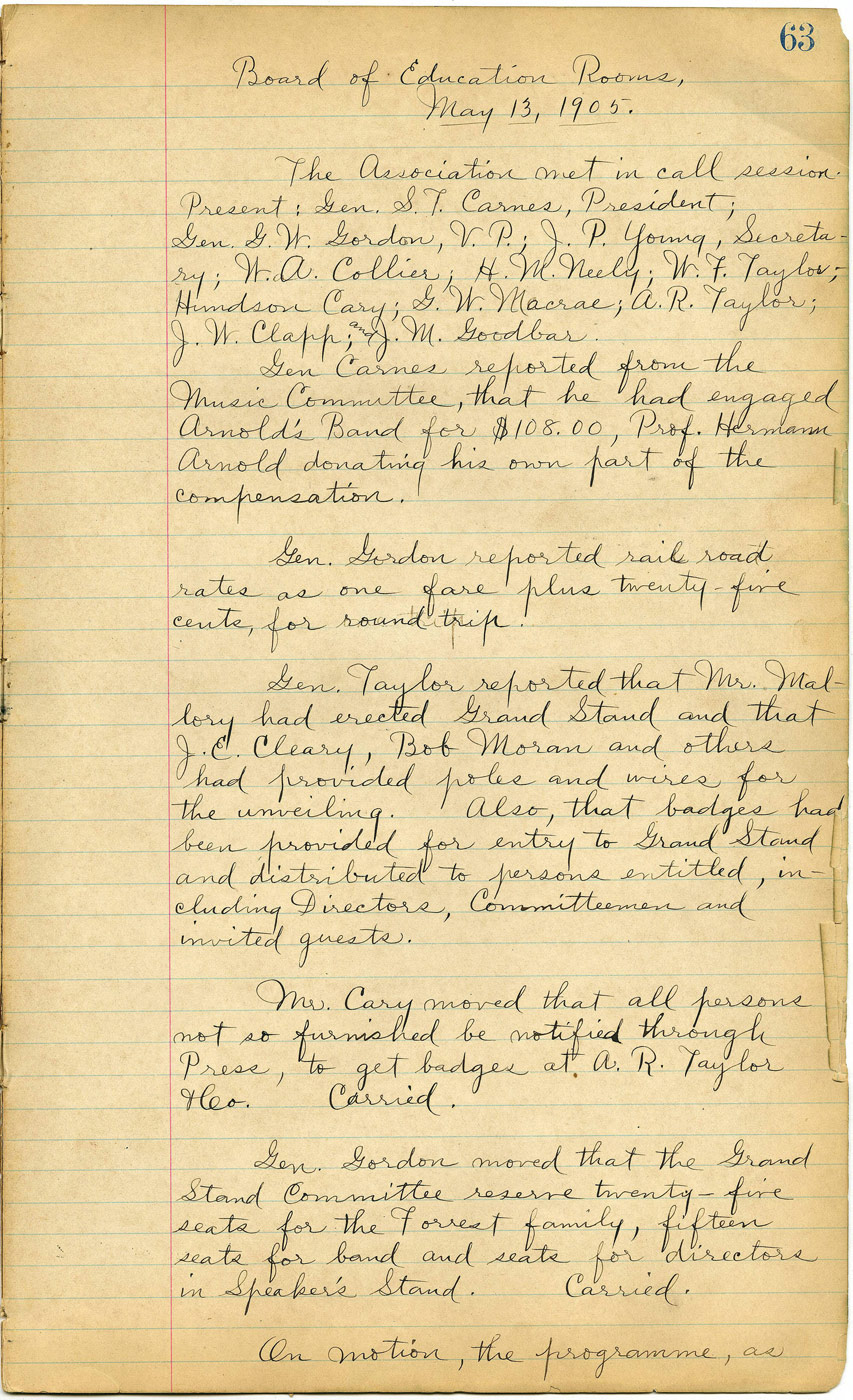 63
Board of Education Rooms,
May 13, 1905.
The Association met in call session.
Present: Gen. S. T. Carnes, President;
Gen. G. W. Gordon, V. P.; J. P. Young, Secreta-
ry; W. A. Collier; H. M. Neely; W. F. Taylor;
Hundson Cary; G. W. Macrae; A. R. Taylor;
J. W. Clapp; and J. M. Goodbar.
Gen Carnes reported from the
Music Committee, that he had engaged
Arnold's Band for $108.00, Prof. Hermann
Arnold donating his own part of the
compensation.
Gen. Gordon reported rail road
rates as one fare plus twenty-five
cents, for round trip.
Gen. Taylor reported that Mr. Mal-
lory had erected Grand Stand and that
J. E. Cleary, Bob Moran and others
had provided poles and wires for
the unveiling. Also, that badges had
been provided for entry to Grand Stand
and distributed to persons entitled, in-
cluding Directors, Committeemen and
invited guests.
Mr. Cary moved that all persons
not so furnished be notified through
Press, to get badges at A. R. Taylor
& Co. Carried.
Gen. Gordon moved that the Grand
Stand Committee reserve twenty-five
seats for the Forrest family, fifteen
seats for band and seats for directors
in Speaker's Stand. Carried.
On motion, the programme, as